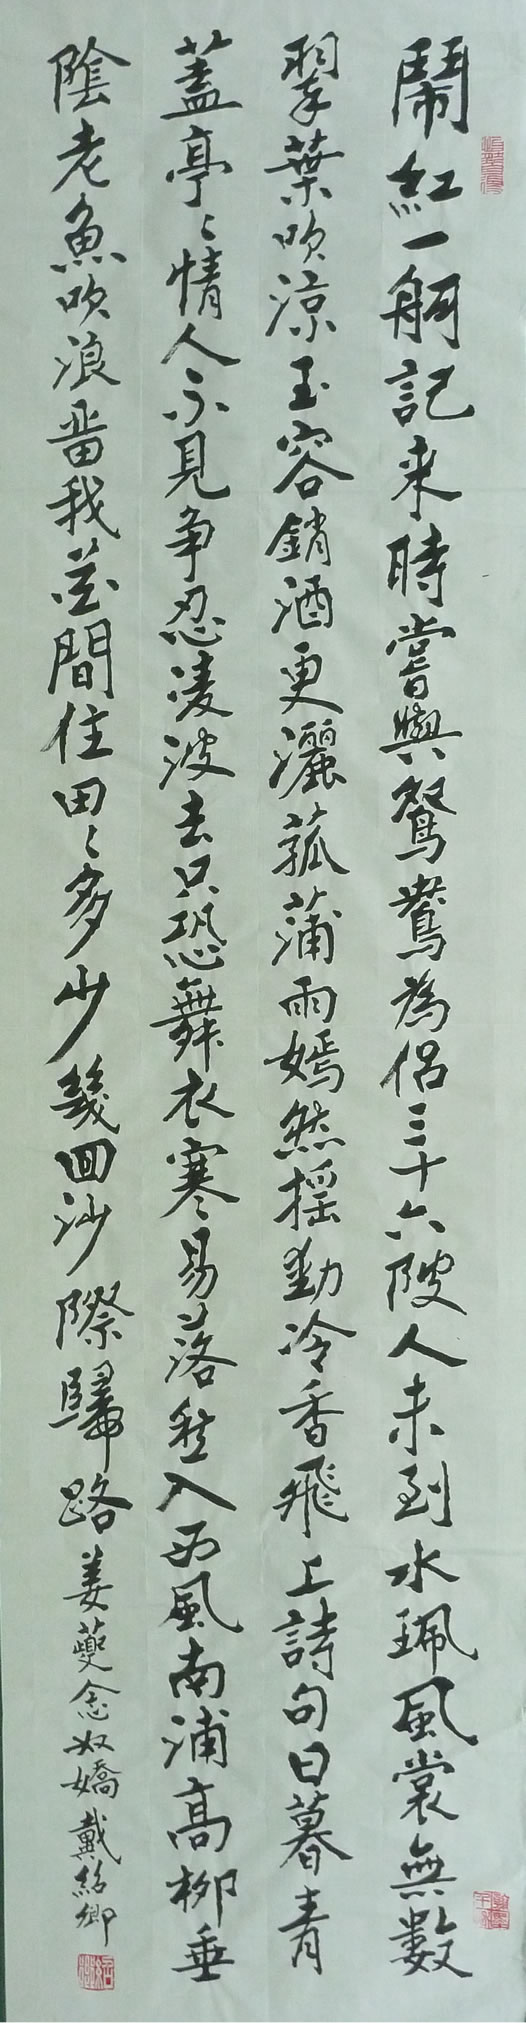 鬧紅一舸記来時嘗與鴛鴦為侣三十六陂人未到水珮風裳無數
翠葉吹涼玉容銷酒更灑菰蒲雨嫣然摇動冷香飛上詩句日暮青
蓋亭〻情人不見争忍凌波去只恐舞衣寒易落愁入西風南浦高柳垂
陰老魚吹浪留我花間住田〻多少幾回沙際歸路
姜夔念奴嬌戴紹卿